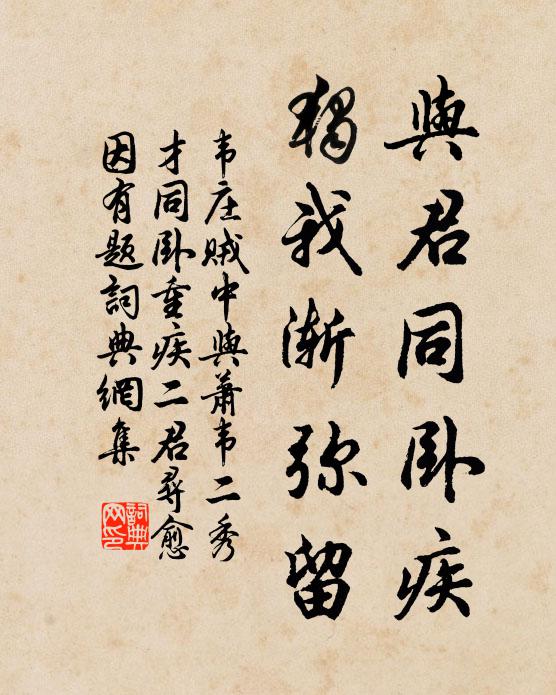 與君同卧疾
獨我漸弥留
韦庄贼中與蕭韦二秀
才同卧重疾二君尋愈
因有题詞典網集
詞典
网印